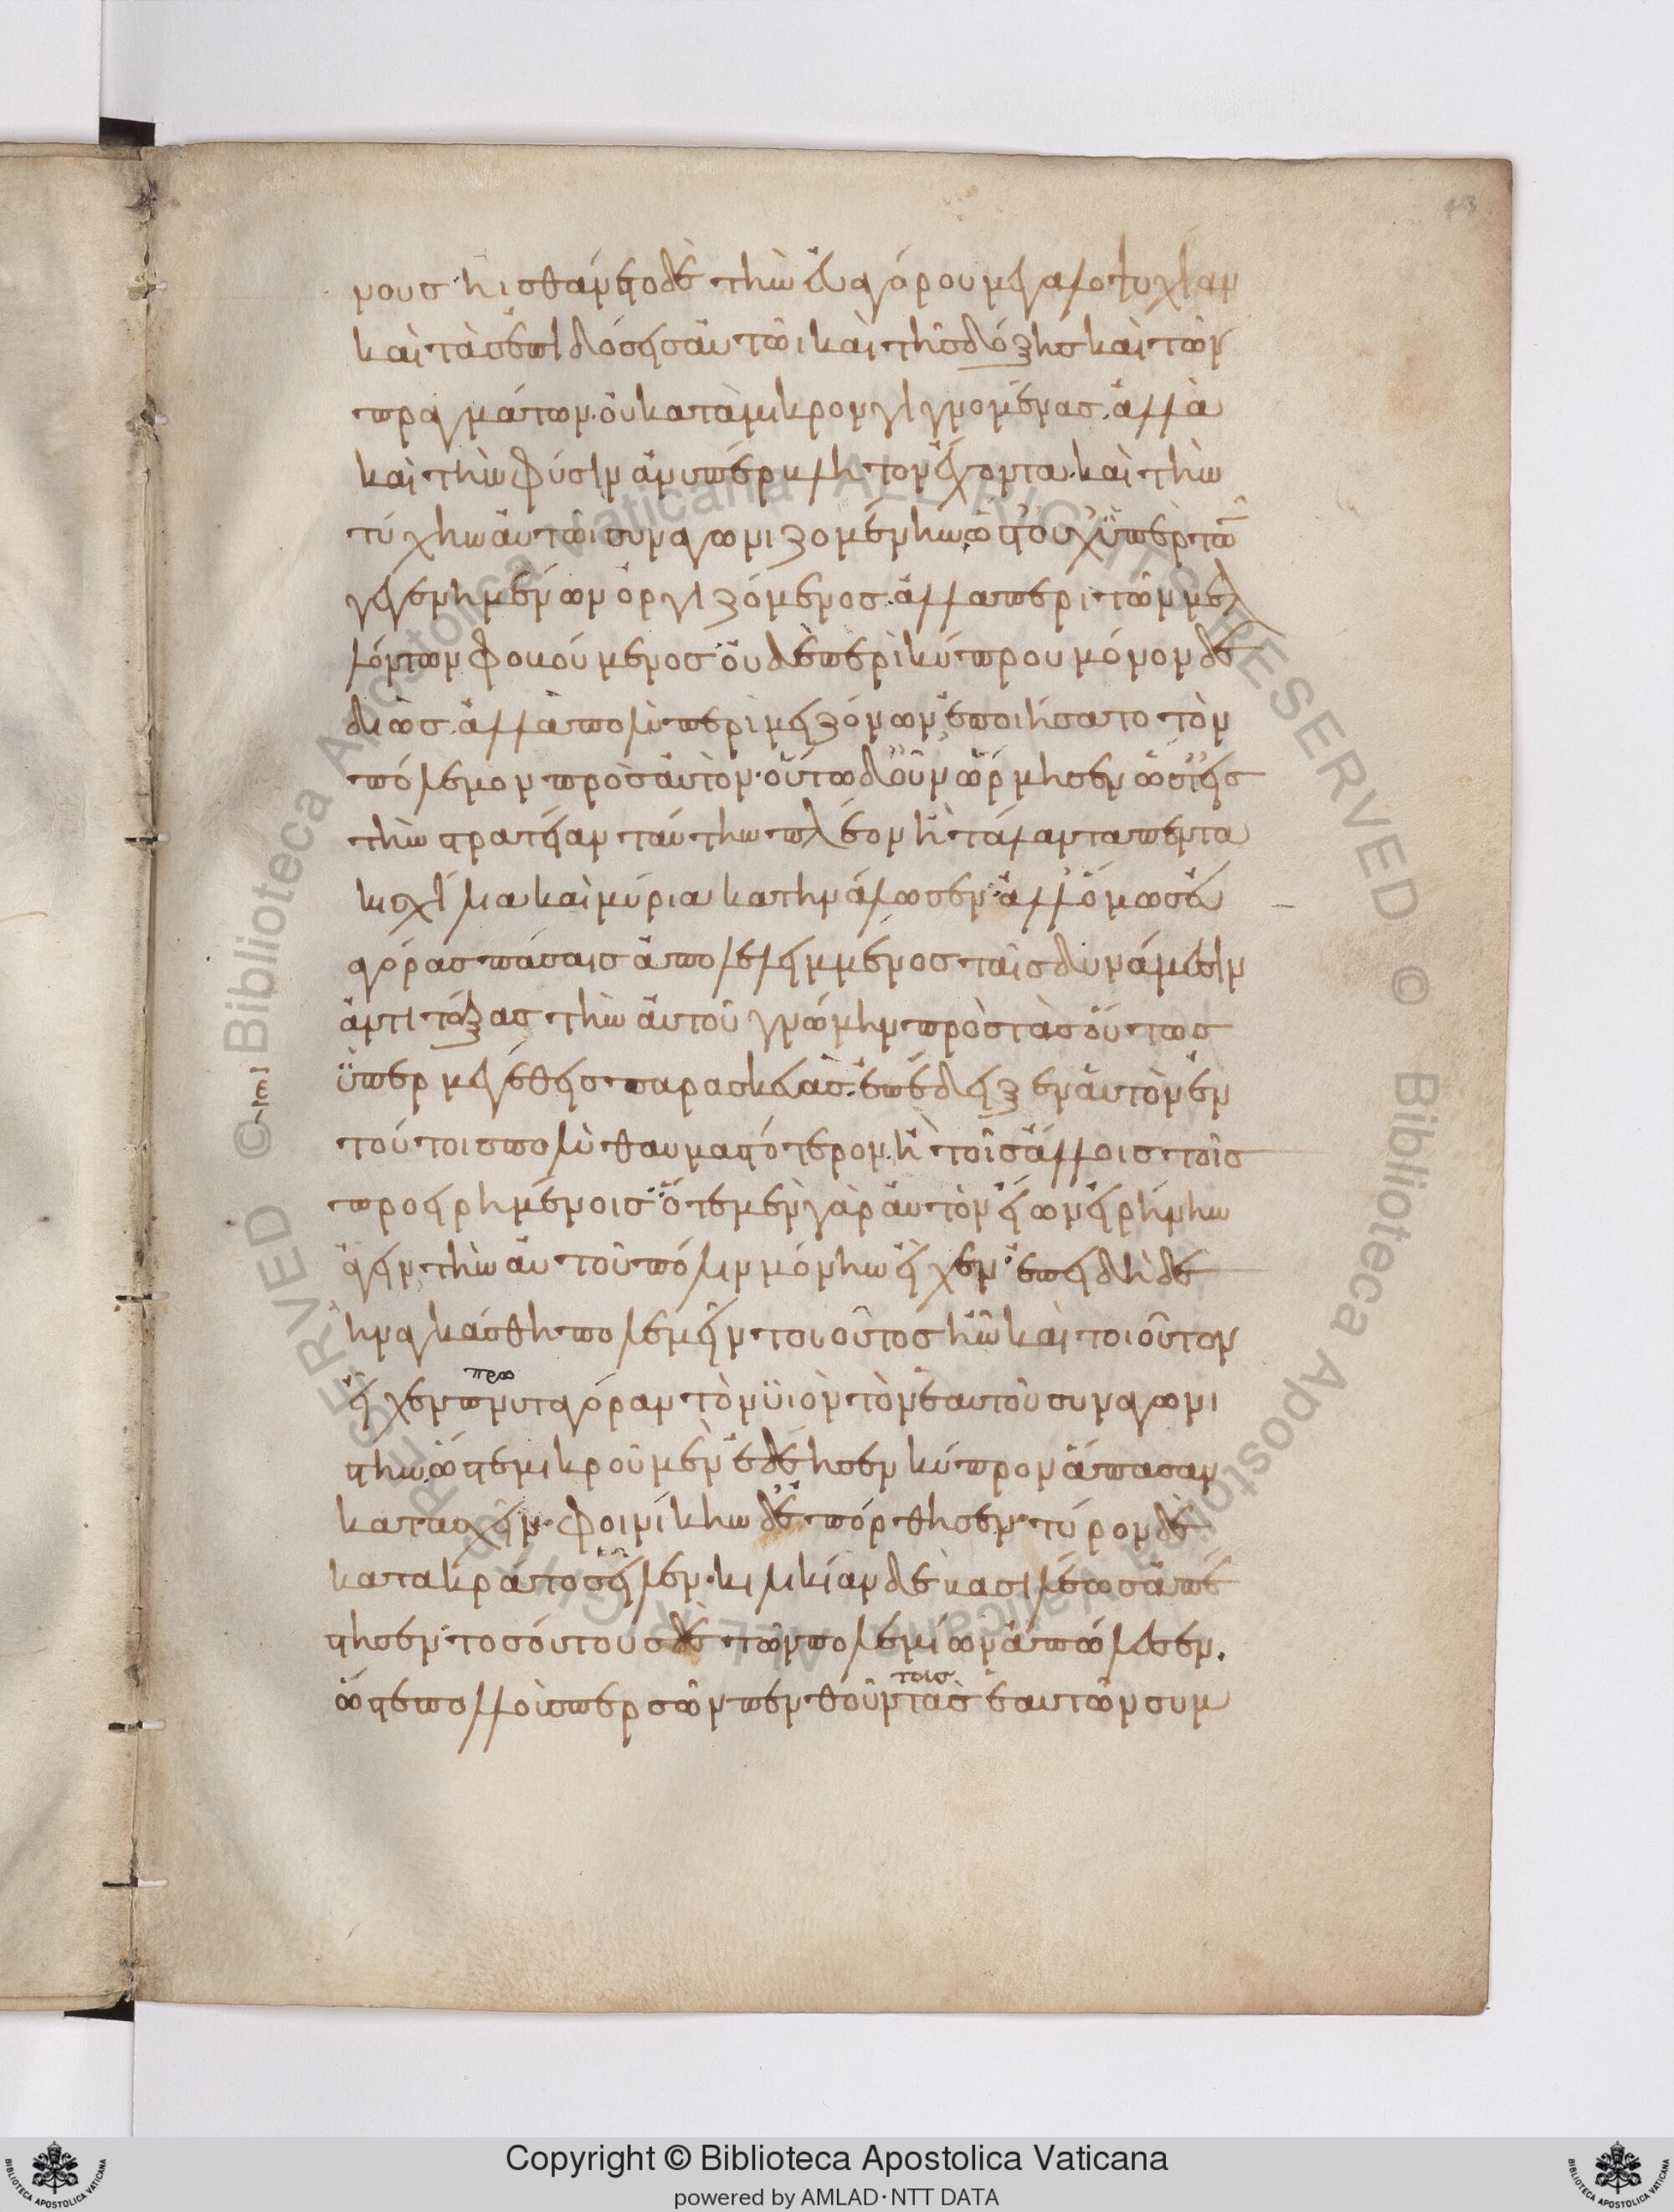 νους· ἠισθάνετο δὲ τὴν ἐυαγόρου μεγαλοψυχίαν
καὶ τὰς ἐπιδόσεις ἀυτῶι καὶ τῆς δόξης καὶ τῶν
πραγμάτων· ὀυ κατὰ μικρον γιγνομένας. ἀλλὰ
καὶ τὴν φύσιν ἀνυπέρβλητον ἔχοντα. καὶ τὴν
τύχην ἀυτῶι συναγωνιζομένην. ὥστ' ὀυχ' ὑπὲρ τῶ
γεγενημένων ὀργιζόμενος. ἀλλα περὶ τῶν μελ
λόντων φοβούμενος· ὀυδὲ περὶ κύπρου μόνον δε
διὼς. ἀλλὰ πολὺ περὶ μειζόνων ἐποιήσατο τὸν
πόλεμον πρὸς ἀυτὸν· οὕτω δ' οὖν ὥρμησεν ὥστ' εἰς
τὴν στρατείαν ταύτην πλέον ἢ τάλαντα πεντα
κισχίλια καὶ μύρια κατηνάλωσεν· ἀλλ' ὅμως ἐυ
αγόρας πάσαις ἀπολελειμμένος ταῖς δυνάμεσιν
ἀντιτάξας τὴν ἁυτοῦ γνώμην πρὸς τὰς ὄυτως
ὑπερμεγέθεις παρασκευὰς. ἐπέδειξεν ἁυτὸν ἐν
τούτοις πολὺ θαυμαστότερον. ἢ τοῖς ἄλλοις τοῖς
προειρημένοις· ὅτε μὲν γὰρ ἀυτὸν εἴων εἰρήνην
ἄγειν τὴν ἁυτοῦ πόλιν μόνην εἶχεν· ἐπειδὴ δὲ
ἠναγκάσθη πολεμεῖν τοιοῦτος ἦν καὶ τοιοῦτον
εἶχεν πνυταγόραν τὸν ϋιὸν τὸν ἑαυτοῦ συναγωνι
πρω
στὴν. ὥστε μικροῦ μὲν ἐδέησεν κύπρον ἅπασαν
κατασχεῖν. φοινίκην δ' ἐπόρθησεν· τύρον δὲ
κατακράτος εἷλεν· κιλικίαν δὲ βασιλέως ἀπέ
στησεν· τοσόυτους δὲ τῶν πολεμίων ἀπώλεσεν.
ὥστε πολλοὶς περσῶν πενθοῦντας ἑαυτῶν συμ
τοισ